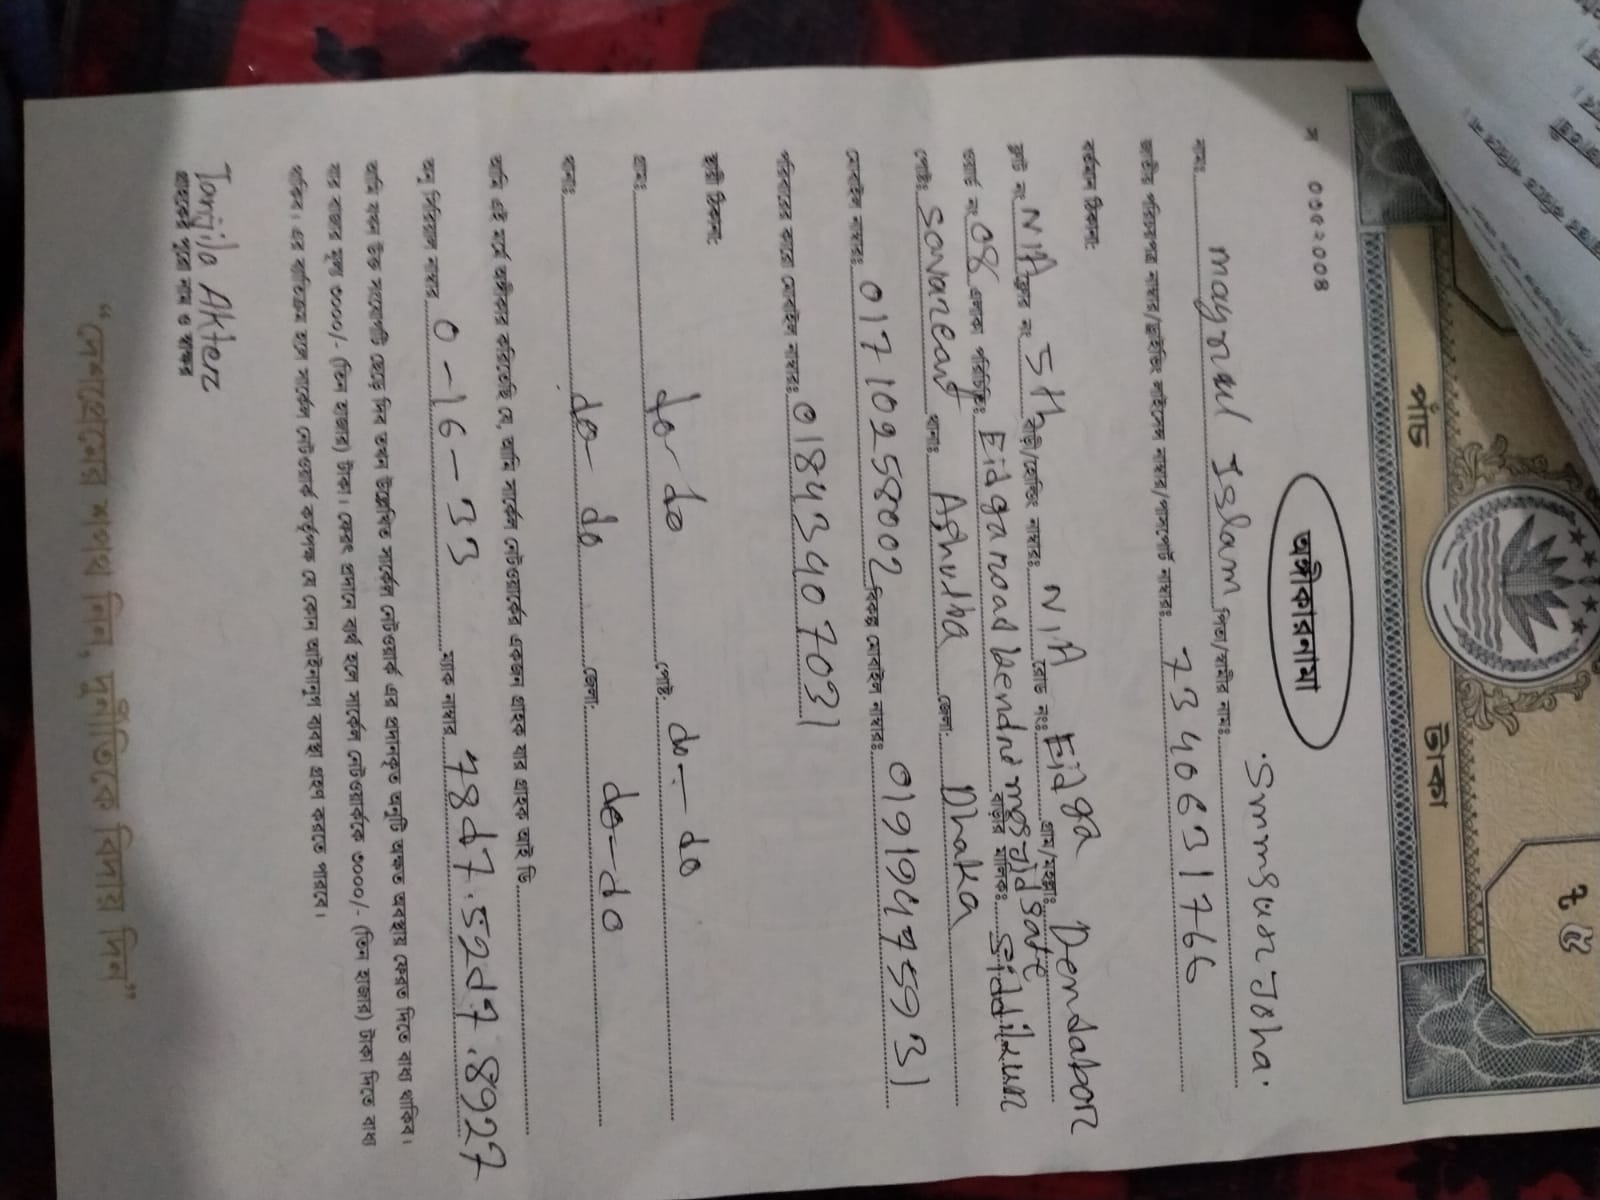 পাঁচ টাকা
৳ ৫
০৩৫২০০৪
অঙ্গীকারনামা
নামঃ moynul Islam পিতা/স্বামীর নামঃ Smmsusr Joha.
জাতীয় পরিচয়পত্র নাম্বার/ড্রাইভিং লাইসেন্স নাম্বার/পাসপোর্ট নাম্বারঃ 7340631766
বর্তমান ঠিকানা:
ফ্লাট নং N/A ফ্লোর নং 5th বাড়ি/হোল্ডিং নাম্বারঃ N/A রোড নংঃ Eidga গ্রাম/মহল্লাঃ Dendabor
ওয়ার্ড নং 08 এলাকা পরিচিতিঃ Eidga road kendrio mosjid gate বাড়ীর মালিকঃ
পোষ্টঃ থানাঃ Ashulha জেলা: Dhaka
মোবাইল নাম্বারঃ 01710258002 বিকল্প মোবাইল নাম্বারঃ 01919475931
পরিবারের কারো মোবাইল নাম্বারঃ 01843407031
স্থায়ী ঠিকানা:
গ্রামঃ do-do পোষ্ট: do-do
থানাঃ do-do জেলা: do-do
আমি এই মর্মে অঙ্গীকার করিতেছি যে, আমি সার্কেল নেটওয়ার্কের একজন গ্রাহক যার গ্রাহক আই ডি
অনু সিরিয়াল নাম্বার 0-16-33 ম্যাক নাম্বার 78d7.52d7.8927
আমি যখন উক্ত সংযোগটি ছেড়ে দিব তখন উল্লেখিত সার্কেল নেটওয়ার্ক এর প্রদানকৃত অনুটি অক্ষত অবস্থায় ফেরত দিতে বাধ্য থাকিব।
যার বাজার মূল্য ৩০০০/- (তিন হাজার) টাকা। ফেরৎ প্রদানে ব্যর্থ হলে সার্কেল নেটওয়ার্ককে ৩০০০/- (তিন হাজার) টাকা দিতে বাধ্য
থাকিব। এর ব্যতিক্রম হলে সার্কেল নেটওয়ার্ক কর্তৃপক্ষ যে কোন আইনানুগ ব্যবস্থা গ্রহণ করতে পারবে।
Tanjila Akter
গ্রাহকের পুরো নাম ও স্বাক্ষর
“দেশপ্রেমের শপথ নিন, দুর্নীতিকে বিদায় দিন”